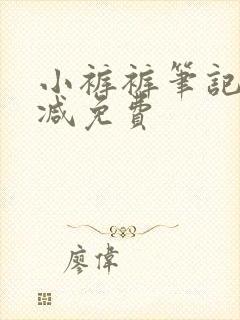 小裤裤筆記
减免費
廖偉